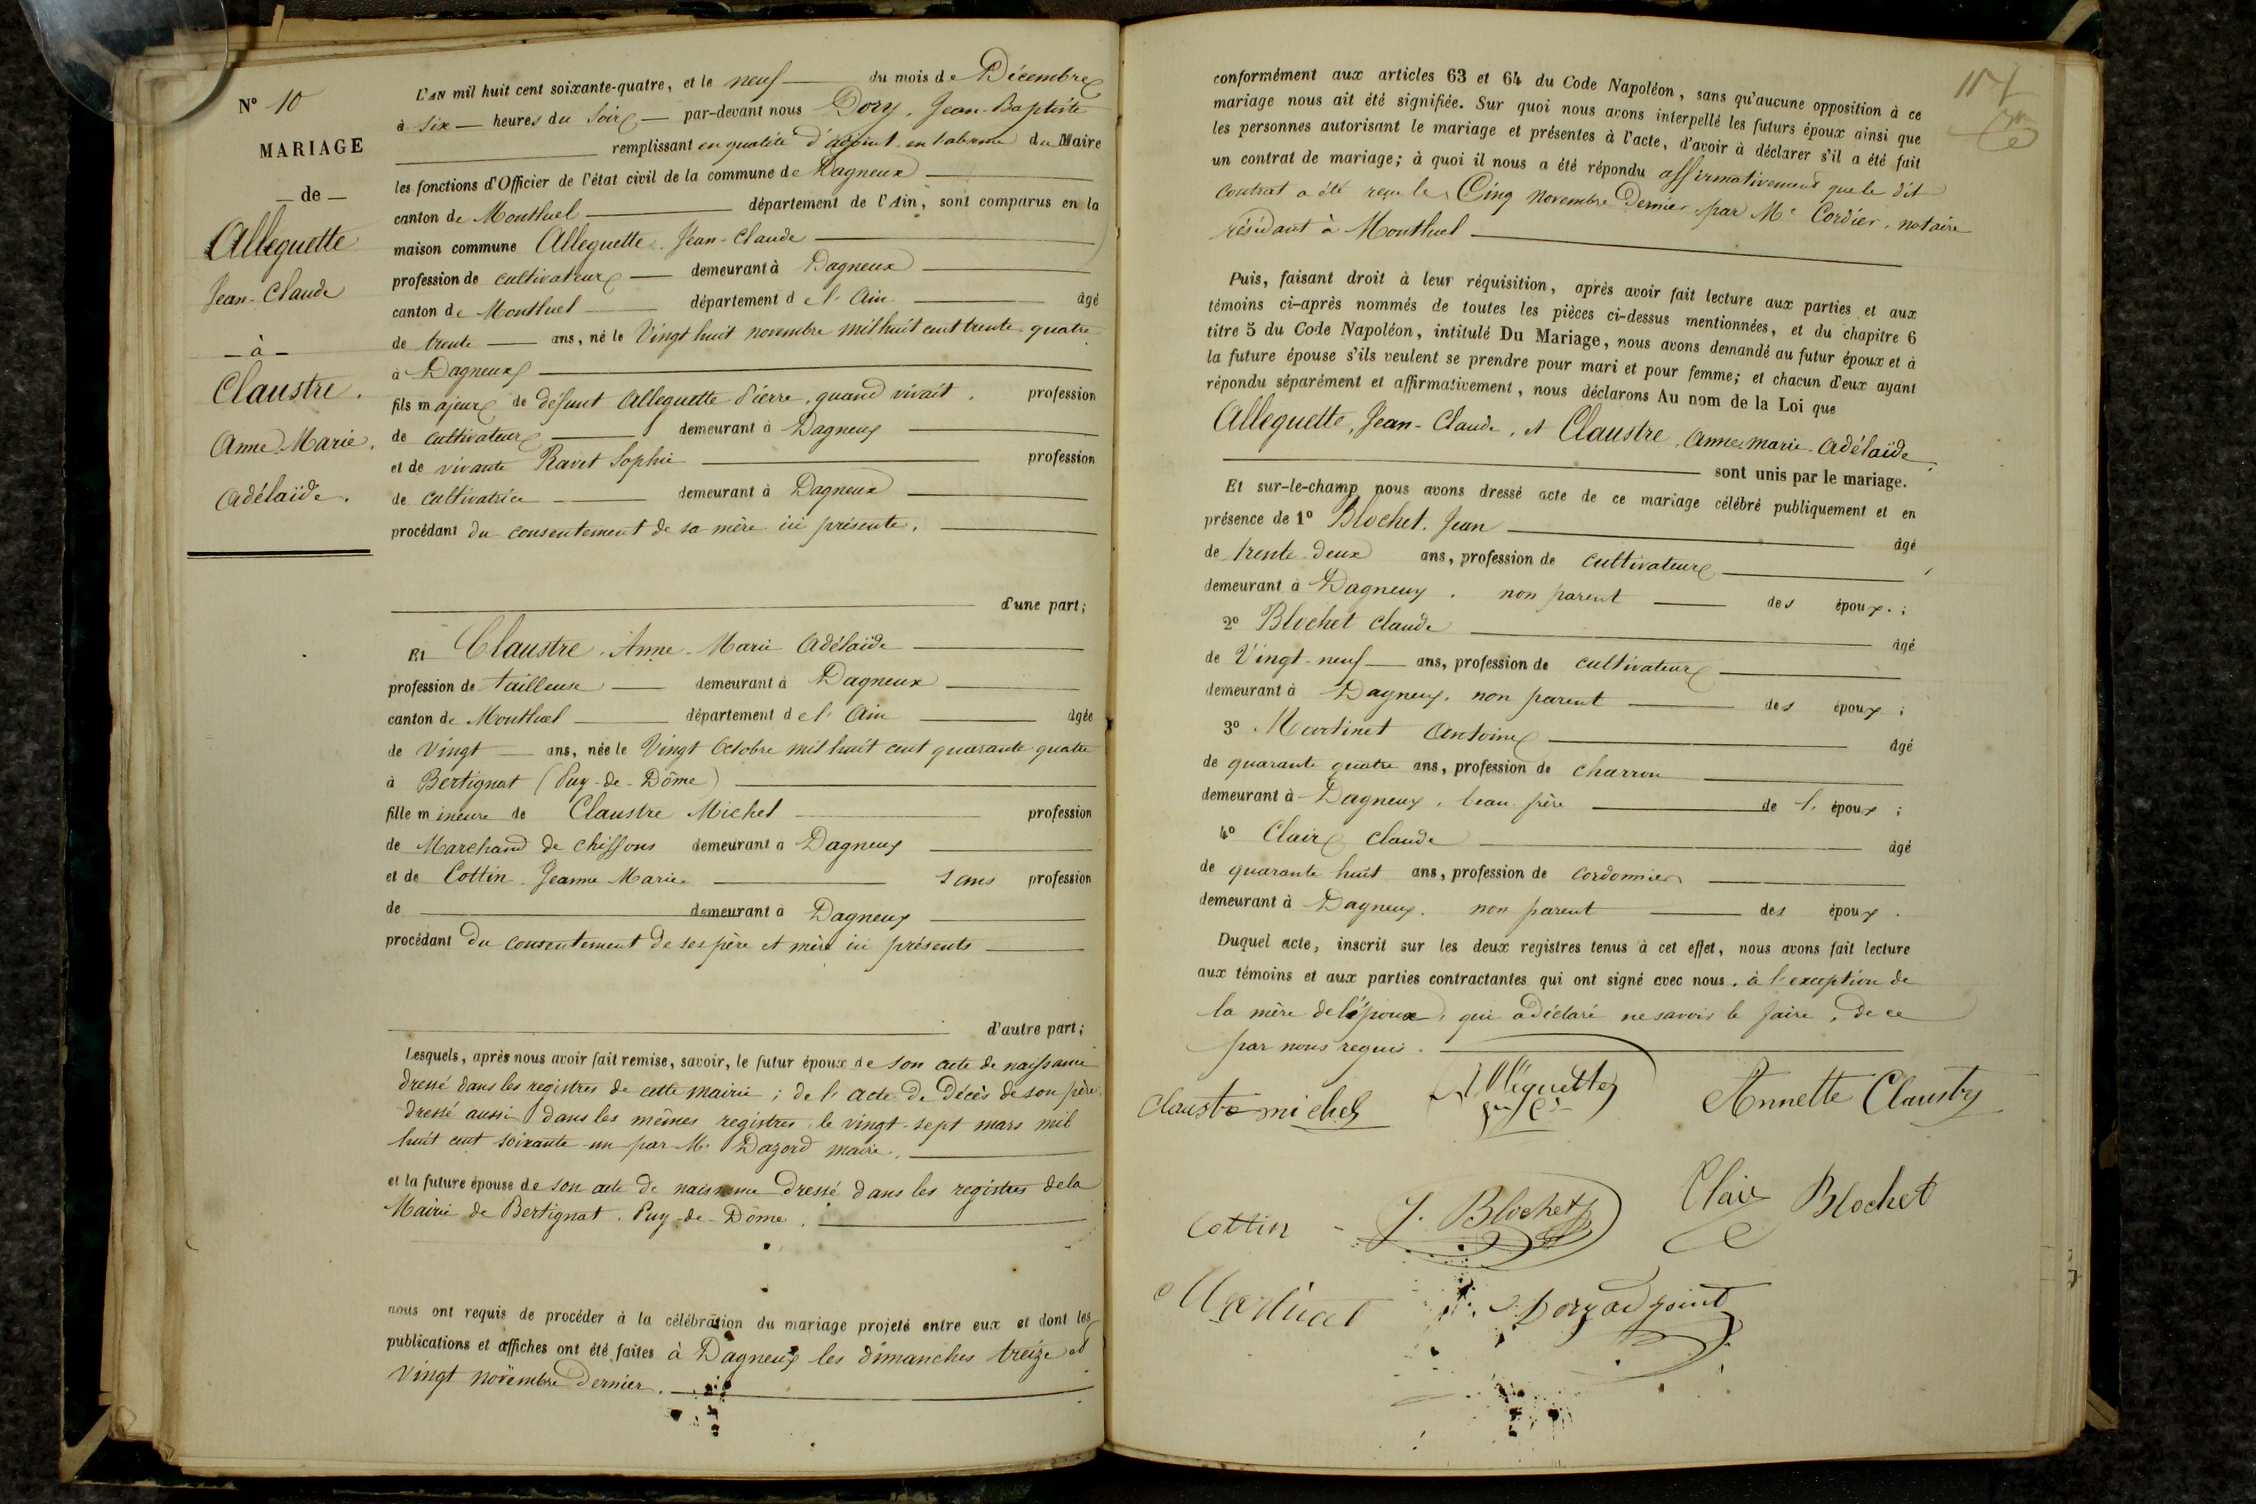 N° 10
MARIAGE
— de —
Alleguette
Jean-Claude
— à —
Claustre.
Anne Marie.
Adélaïde.
L'AN mil huit cent soixante-quatre, et le neuf du mois de Décembre
à six heures du soir par-devant nous Dory, Jean-Baptiste
remplissant en qualité d'adjoint en l'absence du Maire
les fonctions d'Officier de l'état civil de la commune de Dagneux
canton de Montluel département de l'Ain, sont comparus en la
maison commune Alleguette. Jean-Claude
profession de cultivateur demeurant à Dagneux
canton de Montluel département de l'Ain âgé
de trente ans, né le Vingt huit novembre mil huit cent trente-quatre
à Dagneux
fils majeur de défunt Alleguette Pierre, quand vivait, profession
de cultivateur demeurant à Dagneux
et de vivante Ravet Sophie profession
de cultivatrice demeurant à Dagneux
procédant du consentement de sa mère ici présente.
d'une part;
Et Claustre. Anne-Marie Adélaïde
profession de tailleuse demeurant à Dagneux
canton de Montluel département de l'Ain âgée
de vingt ans, née le Vingt Octobre mil huit cent quarante quatre
à Bertignat (Puy-de-Dôme)
fille mineure de Claustre Michel profession
de Marchand de chiffons demeurant à Dagneux
et de Cottin. Jeanne Marie sans profession
de demeurant à Dagneux
procédant du consentement de ses père et mère ici présents
d'autre part;
Lesquels, après nous avoir fait remise, savoir, le futur époux de son acte de naissance
dressé dans les registres de cette mairie; de l'acte de décès de son père,
dressé aussi dans les mêmes registres, le vingt-sept mars mil
huit cent soixante-un par Mr Dazord maire.
et la future épouse de son acte de naissance dressé dans les registres de la
Mairie de Bertignat. Puy-de-Dôme.
nous ont requis de procéder à la célébration du mariage projeté entre eux et dont les
publications et affiches ont été faites à Dagneux les dimanches treize et
vingt novembre dernier.
conformément aux articles 63 et 64 du Code Napoléon, sans qu'aucune opposition à ce
mariage nous ait été signifiée. Sur quoi nous avons interpellé les futurs époux ainsi que
les personnes autorisant le mariage et présentes à l'acte, d'avoir à déclarer s'il a été fait
un contrat de mariage; à quoi il nous a été répondu affirmativement que le dit
contrat a été reçu le Cinq Novembre dernier par Me Cordier, notaire
résidant à Montluel
Puis, faisant droit à leur réquisition, après avoir fait lecture aux parties et aux
témoins ci-après nommés de toutes les pièces ci-dessus mentionnées, et du chapitre 6
titre 5 du Code Napoléon, intitulé Du Mariage, nous avons demandé au futur époux et à
la future épouse s'ils veulent se prendre pour mari et pour femme; et chacun d'eux ayant
répondu séparément et affirmativement, nous déclarons Au nom de la Loi que
Alleguette, Jean-Claude, et Claustre, Anne-Marie-Adélaïde,
sont unis par le mariage.
Et sur-le-champ nous avons dressé acte de ce mariage célébré publiquement et en
présence de 1° Blochet. Jean âgé
de trente-deux ans, profession de cultivateur
demeurant à Dagneux. non parent des époux.;
2° Blochet Claude âgé
de Vingt-neuf ans, profession de cultivateur
demeurant à Dagneux. non parent des époux;
3° Martinet Antoine âgé
de quarante quatre ans, profession de charron
demeurant à Dagneux. beau-père de l'époux;
4° Clair Claude âgé
de quarante huit ans, profession de cordonnier
demeurant à Dagneux. non parent des époux.
Duquel acte, inscrit sur les deux registres tenus à cet effet, nous avons fait lecture
aux témoins et aux parties contractantes qui ont signé avec nous, à l'exception de
la mère de l'époux, qui a déclaré ne savoir le faire, de ce
par nous requis.
Claustre michel
Alleguette
Annette Claustre
Cottin
J. Blochet
Clair
Blochet
Martinet
Dory adjoint